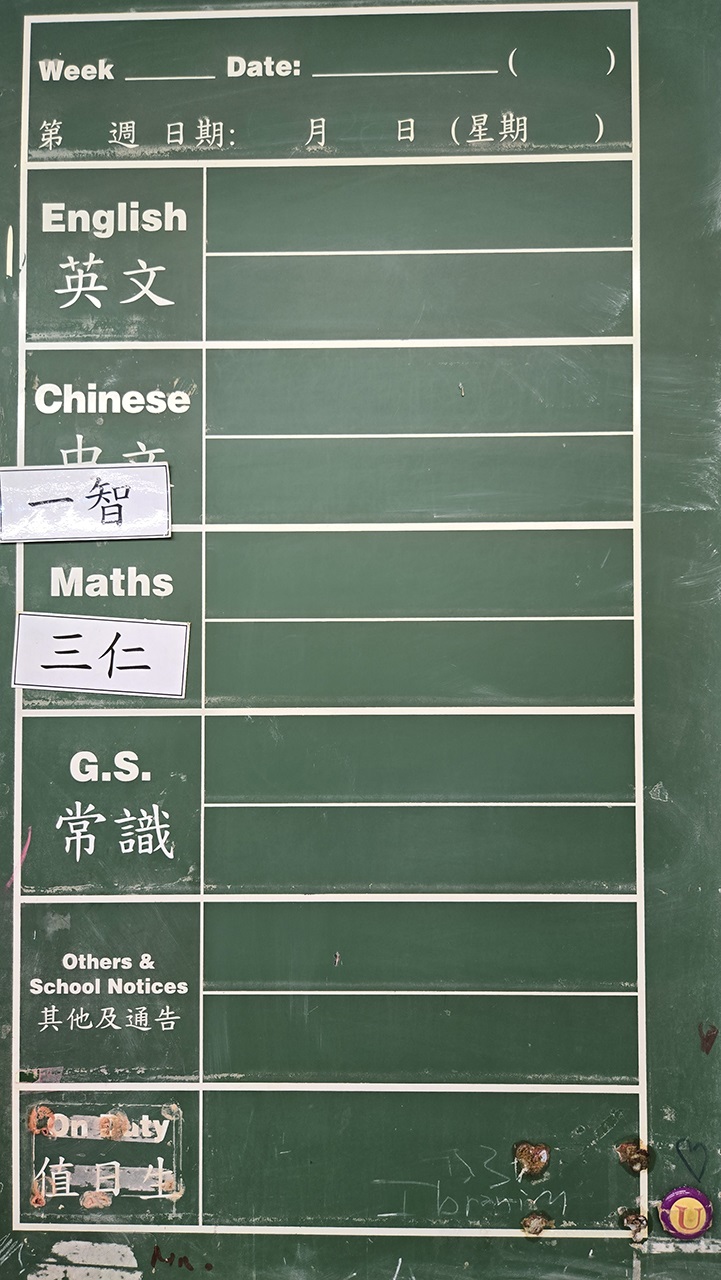 Week ______ Date: ____________ (      )
第 週 日期: 月 日 (星期 )
English
英文
Chinese
中文
一智
Maths
三仁
G.S.
常識
Others &
School Notices
其他及通告
On Duty
值日生
Ibrahim
U